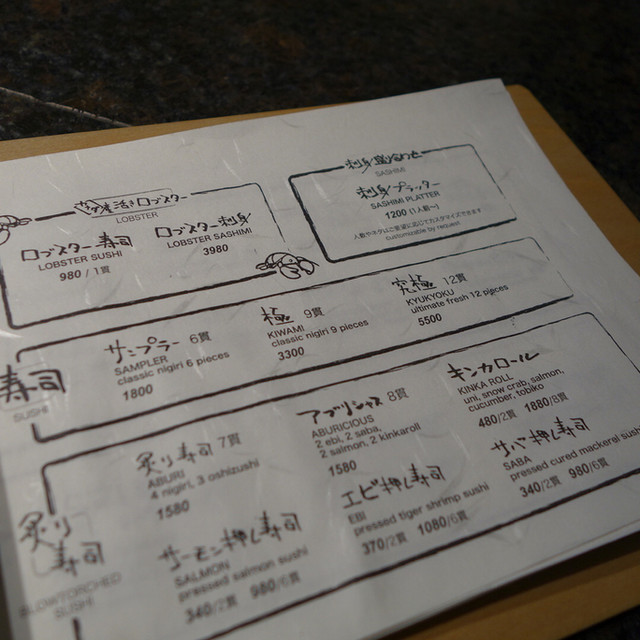 活きロブスター
LOBSTER
ロブスター寿司
LOBSTER SUSHI
980 / 1貫
ロブスター刺身
LOBSTER SASHIMI
3980
刺身盛合わせ
SASHIMI
刺身プラッター
SASHIMI PLATTER
1200 (1人前〜)
人数やネタはご要望に応じてカスタマイズできます
customizable by request
寿司
SUSHI
サンプラー 6貫
SAMPLER
classic nigiri 6 pieces
1800
極 9貫
KIWAMI
classic nigiri 9 pieces
3300
究極 12貫
KYUKYOKU
ultimate fresh 12 pieces
5500
炙り
寿司
BLOWTORCHED
SUSHI
炙り寿司 7貫
ABURI
4 nigiri, 3 oshizushi
1580
アブリシャス 8貫
ABURICIOUS
2 ebi, 2 saba,
2 salmon, 2 kinkaroll
1580
キンカロール
KINKA ROLL
uni, snow crab, salmon,
cucumber, tobiko
480/2貫 1880/8貫
サーモン押し寿司
SALMON
pressed salmon sushi
340/2貫 980/6貫
エビ押し寿司
EBI
pressed tiger shrimp sushi
370/2貫 1080/6貫
サバ押し寿司
SABA
pressed cured mackerel sushi
340/2貫 980/6貫